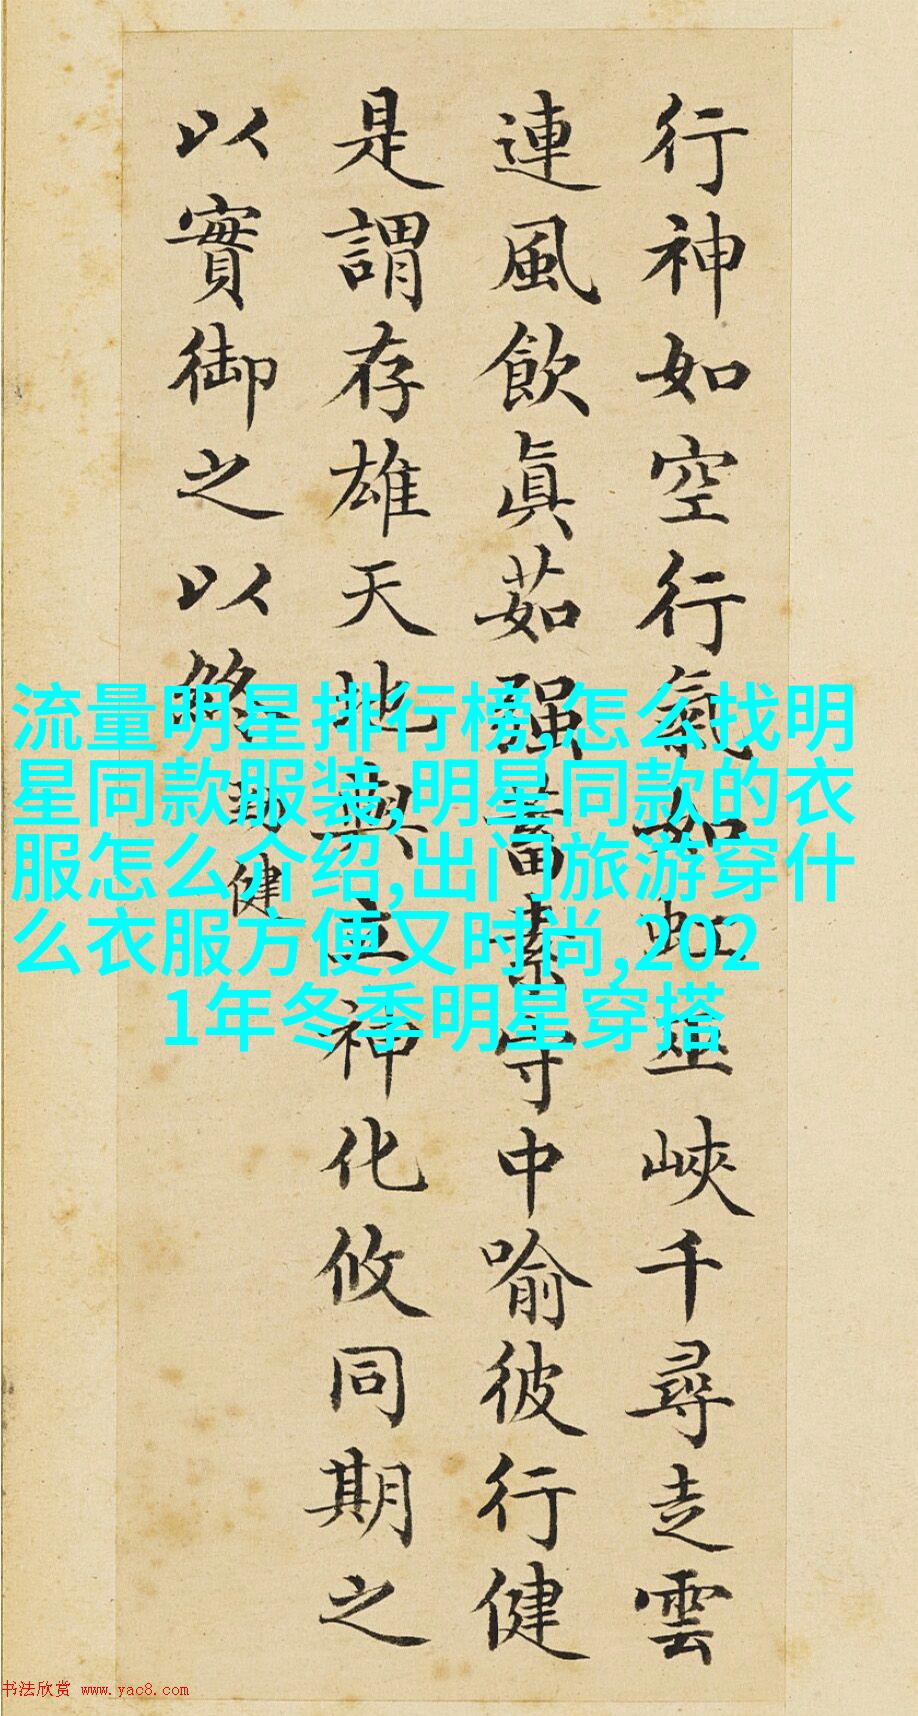 行神如空行氣如虹巫峽千尋走雲
連風飲眞茹强蓄素守中喻彼行健
是謂存雄天地與立神化攸同期之
以實御之以終 勁健
流量明星排行榜,怎么找明
星同款服装,明星同款的衣
服怎么介绍,出门旅游穿什
么衣服方便又时尚,202
1年冬季明星穿搭
书法欣赏 www.yac8.com